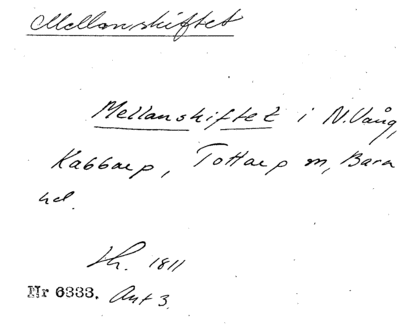 Mellanskiftet
Mellanskiftet i N. Vång,
Kabbarp, Tottarp m, Bara
hd.
Lh. 1811
Nr 6333. Akt 3.